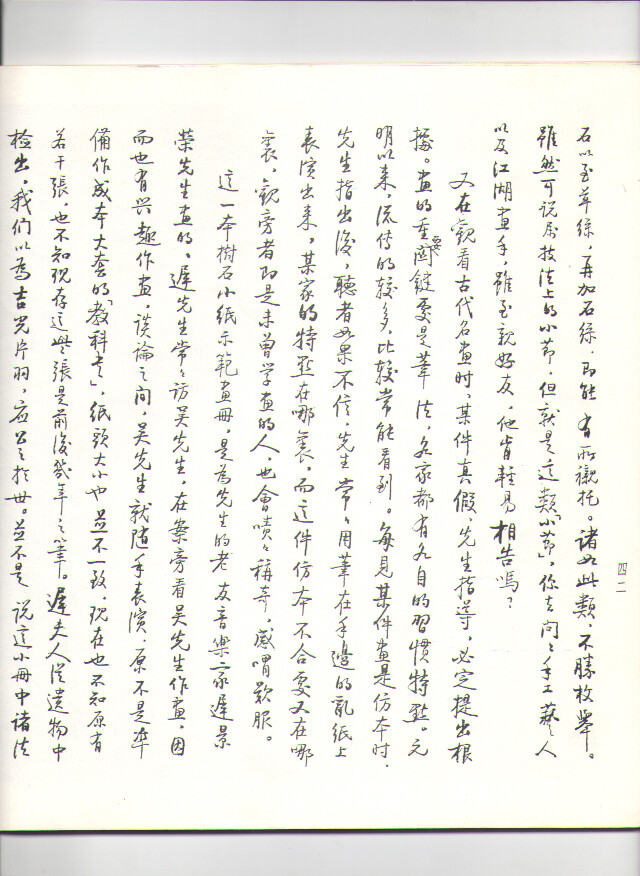 石以至草綠，再加石綠，即能有所襯托。諸如此類，不勝枚舉。
雖然可說屬技法上的小節，但就是這類「小節」，你去問々手工藝人
以及江湖畫手，雖至親好友，他肯輕易相告嗎？
又在觀看古代名畫時，某件真假，先生指導，必定提出根
據。畫的重要關鍵要是筆法，各家都有各自的習慣特點。元
明以來，流傳的較多，比較常能看到。每見某件畫是仿本時，
先生指出後，聽者如果不信，先生常々用筆在手邊的亂紙上
表演出來，某家的特點在哪裏，而這件仿本不合處又在哪
裏，觀旁者即是未曾學畫的人，也會嘖々稱奇，感喟歎服。
這一本樹石小紙示範畫冊，是為先生的老友音樂家遲景
榮先生畫的。遲先生常々訪吳先生，在案旁看吳先生作畫，因
而也有兴趣作畫，談論之間，吳先生就随手表演，原不是準
備作成本大套的「教科書」，紙頭大小也並不一致，現在也不知原有
若干張，也不知現存這些張是前後幾年之筆。遲夫人從遺物中
檢出，我們以為吉光片羽，應公之於世。並不是說這小冊中諸法
四二